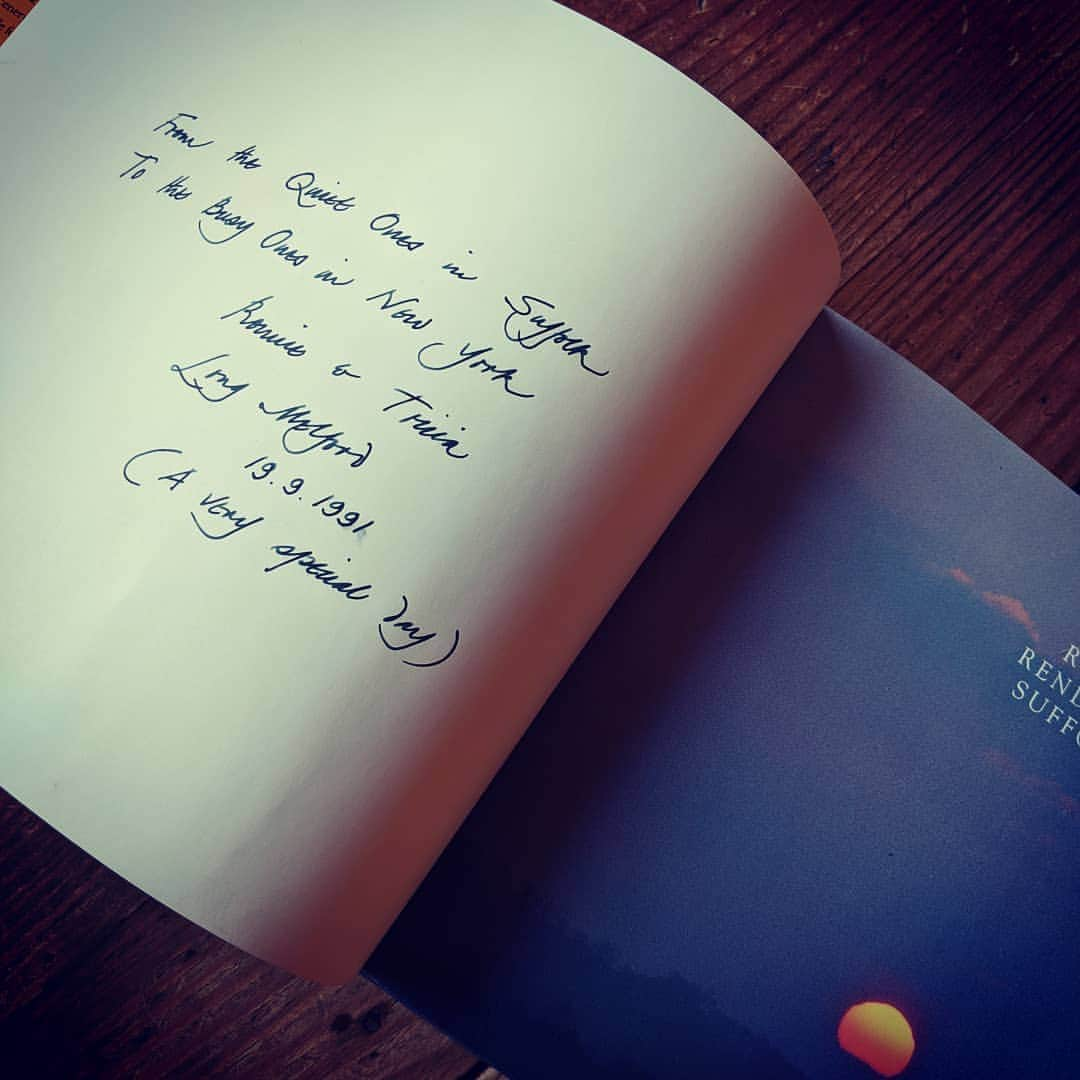 From the Quiet Ones in Suffolk
To the Busy Ones in New York
Ronnie & Tricia
Long Melford
19.9.1991
(A very special day)
R
REND
SUFFO